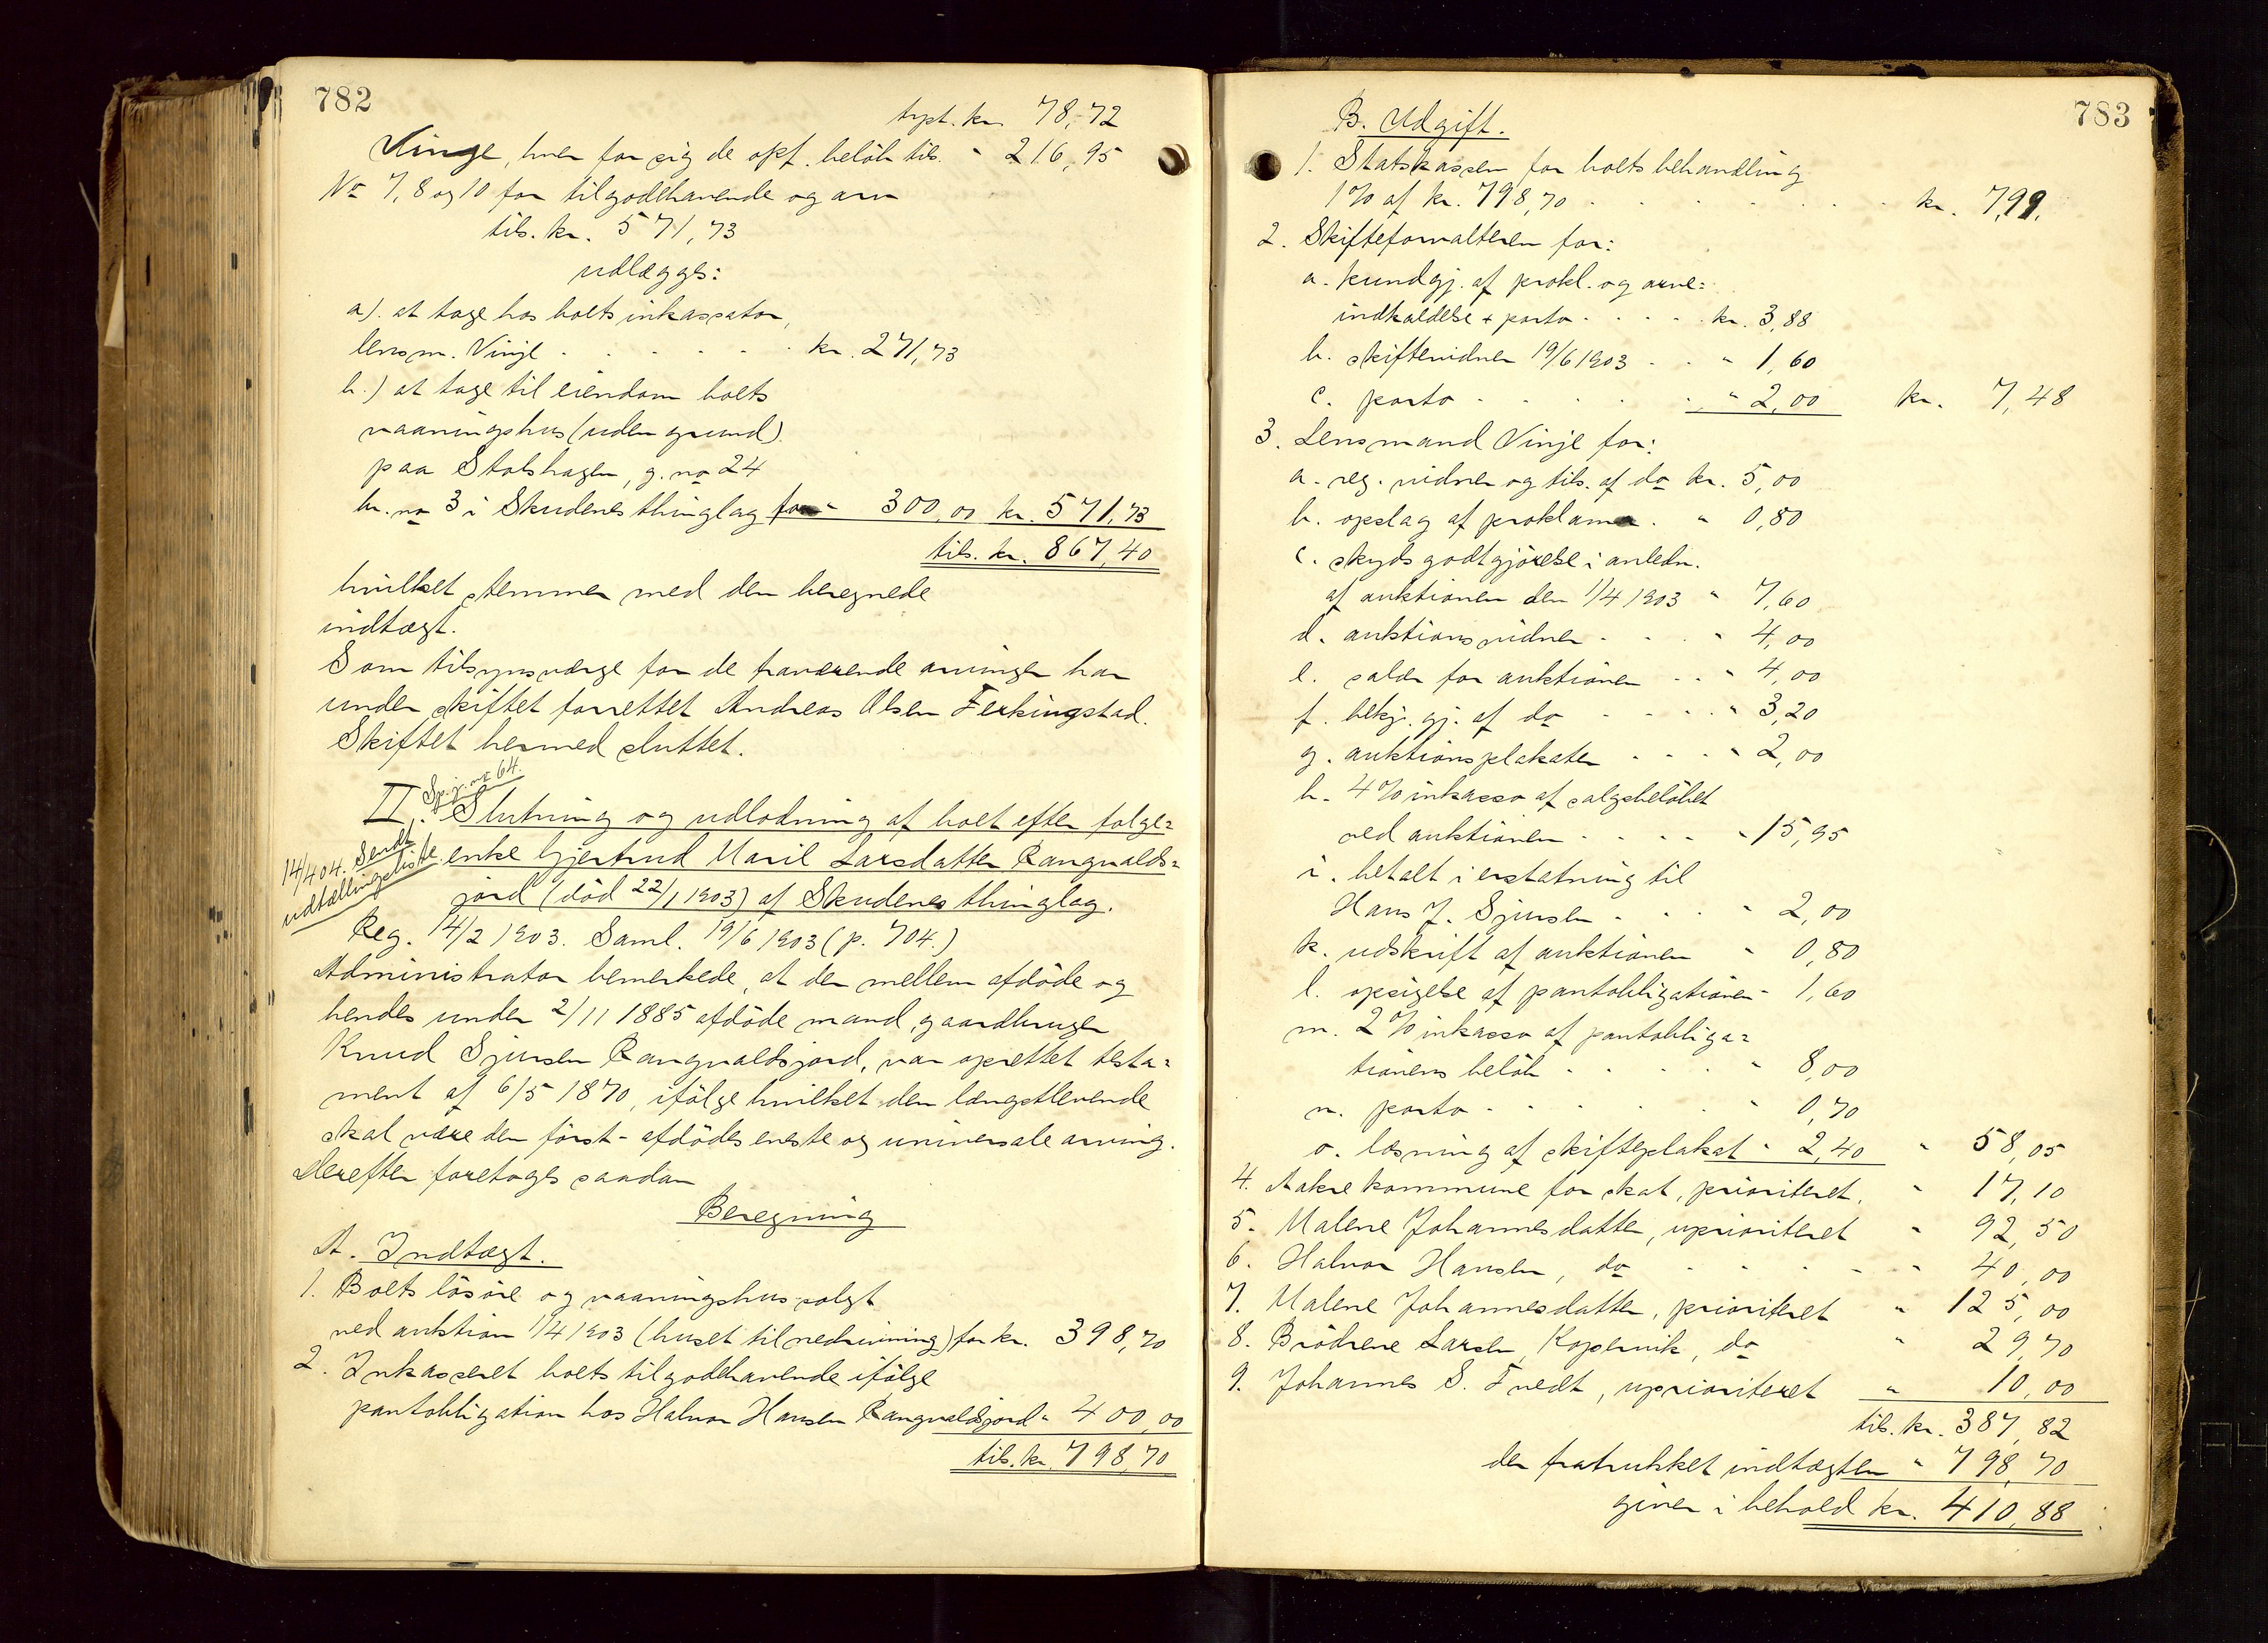 782
trpt. kr. 78,72
Vinge, hver for sig de opf. beløb tils. " 216,95
No 7, 8 og 10 for tilgodehavende og arv
tils. kr. 571,73
udlægges:
a). at tage hos boets inkassator,
lensm. Vinje . . . . . . kr. 271,73
b.) at tage til eiendom boets
vaaningshus (uden grund)
paa Stolshagen, g. no 24
br. no 3 i Skudenes thinglag for " 300,00 kr. 571,73
tils. kr. 867,40
hvilket stemmer med den beregnede
indtægt.
Som tilsynsværge for de fraværende arvinger har
under skiftet forrettet Andreas Olsen Ferkingstad.
Skiftet hermed sluttet.
Sp. j. no 64.
II. Slutning og udlodning af boet efter folge=
14/4 04. Sendt
udtællingsliste.
enke Gjertrud Maril Larsdatter Rangvalds=
jord (död 22/1 1903) af Skudenes thinglag.
Reg. 14/2 1903. Saml. 19/6 1903 (p. 704.)
Administrator bemerkede, at der mellem afdöde og
hendes under 2/11 1885 afdöde mand, gaardbruger
Knud Sjursen Rangvaldsjord, var oprettet testa=
ment af 6/5 1870, ifölge hvilket den længstlevende
skal være den först-afdödes eneste og universale arving.
Derefter foretoges saadan
Beregning
A. Indtægt.
1. Boets lösöre og vaaningshus solgt
ved auktion 1/4 1903 (huset til nedrivning) for kr. 398,70
2. Inkasseret boets tilgodehavende ifölge
pantobligation hos Halvor Hansen Rangvaldsjord " 400,00
tils. kr. 798,70
783
B. Udgift.
1. Statskassen for boets behandling
1% af kr. 798,70 . . . . . . . kr. 7,99.
2. Skifteforvalteren for:
a. kundgj. af prokl. og arve=
indkaldelse + porto . . . . kr. 3,88
b. skiftevidner 19/6 1903 . . " 1,60
c. porto . . . . . " 2,00 kr. 7,48
3. Lensmand Vinje for:
a. reg. vidner og tils. af do kr. 5,00
b. opslag af proklama . " 0,80
c. skydsgodtgjörelse i anledn.
af auktionen den 1/4 1903 " 7,60
d. auktionsvidner . . . " 4,00
e. salær for auktionen . . " 4,00
f. bekj. gj. af do . . . . " 3,20
g. auktionsplakaten . . . " 2,00
h. 4% inkasso af salgsbelöbet
ved auktionen . . . . " 15,95
i. betalt i erstatning til
Hans J. Sjursen . . . " 2,00
k. udskrift af auktionen " 0,80
l. opsigelse af pantobligationen " 1,60
m. 2% inkasso af pantobliga=
tionens belöb . . . . " 8,00
n. porto . . . . . " 0,70
o. læsning af skifteplakat " 2,40 " 58,05
4. Aakre kommune for skat, prioriteret. " 17,10
5. Malene Johannesdatter, uprioriteret " 92,50
6. Halvor Hansen, do . . . . " 40,00
7. Malene Johannesdatter, prioriteret " 125,00
8. Brödrene Larsen, Kopervik, do " 29,70
9. Johannes S. Tvedt, uprioriteret " 10,00
tils. kr. 387,82
der fratrukket indtægten " 798,70
giver i behold kr. 410,88